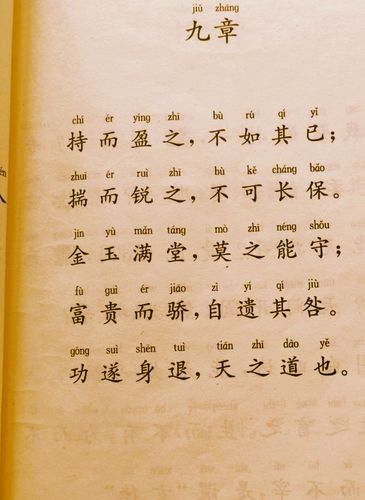 jiǔ zhāng
九章
chí ér yíng zhī bù rú qí yǐ
持而盈之，不如其已；
zhuī ér ruì zhī bù kě cháng bǎo
揣而锐之，不可长保。
jīn yù mǎn táng mò zhī néng shǒu
金玉满堂，莫之能守；
fù guì ér jiāo zì yí qí jiù
富贵而骄，自遗其咎。
gōng suì shēn tuì tiān zhī dào yě
功遂身退，天之道也。